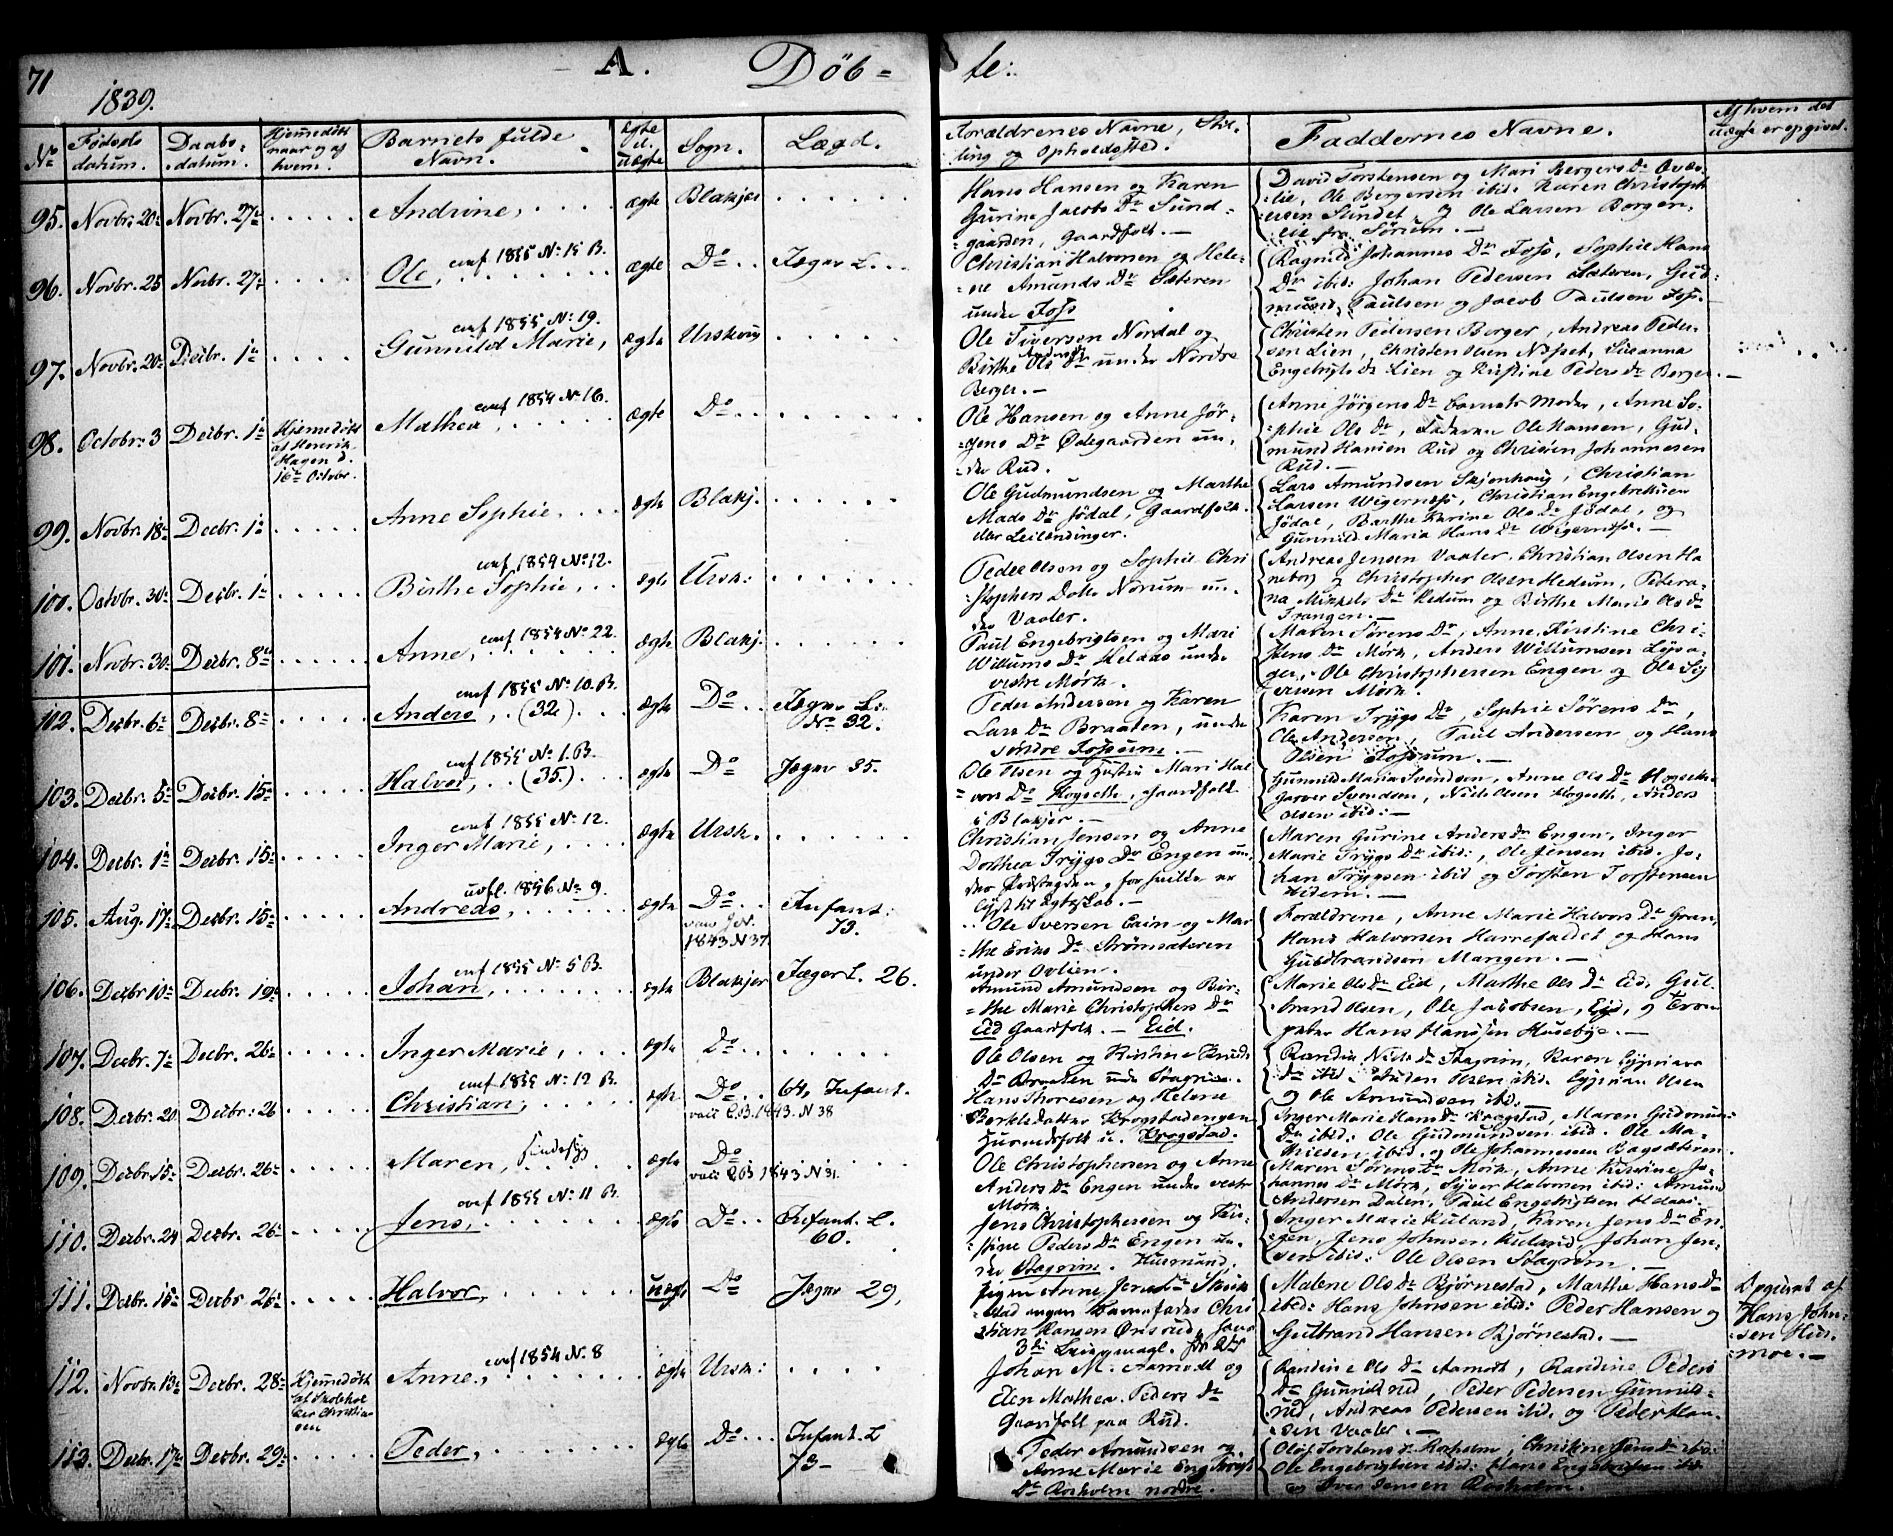 71
A. Døb= te:
1839.
No Fødsels datum. Daabs-datum. Hjemmedøbt naar og af hvem. Barnets fulde Navn. Ægte el. uægte Sogn. Lægd. Forældrenes Navne, Stilling og Opholdssted. Faddernes Navne. Af hvem det uægte er opgivet.
95. Novbr. 20 Novbr. 27 Andrine, ægte Blakjer
Hans Hansen og Karen
Gurine Jacobs Dr Sund-
gaarden, Gaardfolk. —
David Torstensen og Mari Bergers Dr
lie, Ole Bergersen ibid: Karen Christoph
ersen Sundet, og Ole Larsen Borgen
lie fra Sørum. —
96. Novbr. 25 Novbr. 27 Ole, conf 1855 No 15 B. ægte Do Jæger L.
Christian Halvorsen og Hele-
ne Amunds Dr Sæteren
under Foss
Ragnild Johannes Dr Foss, Sophie Hans
Dr ibid: Johan Pedersen Sæteren, Gud-
mund Paulsen og Jacob Paulsen Foss.
97. Novbr. 20 Decbr. 1 Gunnild Marie, conf 1855 No 19. ægte Urskoug
Ole Siversen Nordal og
Birthe Ols Dr under Nordre
Berger. —
Christen Pedersen Berger, Andreas Peder-
sen Lien, Christen Olsen Næsset, Susanna
Engebrigts Dr Lien og Kirstine Peders Dr Berger. —
98. Octobr. 3 Decbr. 1 Hjemmedøbt af Henrik Hagen d. 16 Octobr. Mathea, conf 1854 No 16. ægte Do
Ole Hansen og Anne Jør-
gens Dr Ødegaarden un-
der Rud.
Anne Jørgens Dr barnets Moder, Anne So-
phie Ols Dr, Faderen Ole Hansen, Gud-
mund Hansen Rud og Christen Johannesen
Rud. —
99. Novbr. 18 Decbr. 1 Anne Sophie. ægte Blakj.
Ole Gudmundsen og Marthe
Mads Dr Jødal, Gaardfolk
eller Leilendinger.
Lars Amundsen Skjonhoug, Christian
Larsen Wigernæss, Christian Engebrettsen
Jødal, Barthe Karine Ols Dr Jødal, og
Gunnild Maria Hans Dr Wigernæss. —
100. Octobr. 30 Decbr. 1 Birthe Sophie, conf 1854 No 12. ægte Ursk:
Peder Olsen og Sophie Chri
stophers Datter Norum un-
der Vaaler.
Andreas Jensen Vaaler. Christian Olsen Ha
neborg og Christopher Olsen Hedum, Pedera-
na Mikkels Dr Hedum og Birthe Marie Ols Dr
Trangen.
101. Novbr. 30 Decbr. 8 Anne, conf 1854 No 22. ægte Blakj.
Paul Engebrigtsen og Mari
Willums Dr Helaas under
vestre Mørk.
Maren Sørens Dr, Anne Kirstine Chri-
stens Dr Mørk, Anders Willumsen
Ole Christophersen Engen og Ole Sy
versen Mørk.
102. Decbr. 6 Decbr. 8 Anders, (32) conf 1855 No 10. B. ægte Do Jægr. L. No 32.
Peder Andersen og Karen
Lars Dr Braaten, under
søndre Fossum. —
Karen Trygs Dr, Sophie Sørens Dr,
Ole Andersen, Paul Andersen og Hans
Olsen Fossum. —
103. Decbr. 5 Decbr. 15 Halvor, (35) conf 1855 No 1. B. ægte Do Jægr 35.
Ole Olsen og Hustru Mari Hal
vors Dr Hogsett, Gaardfolk
i Blakjer. —
Gunnild Maria Svendsen, Anne Ols Dr Hogseth
Svendsen, Niels Olsen Hogseth, Anders
Olsen ibid:
104. Decbr. 1 Decbr. 15 Inger Marie, conf 1855 No 12. ægte Ursk.
Christian Jensen og Anne
Dorthea Trygs Dr Engen un-
der Præstegden, for hvilke er
lyst til Ægteskab. —
Maren Gurine Anders Dr Engen, Inger
Marie Trygs Dr ibid:, Ole Jensen ibid. Jo-
han Trygsen ibid og Torsten Torstensen
Hedem. —
105. Aug. 17 Decbr. 15 Andreas, conf. 1856 No 9. ægte Do 1843 N 37. Infant: 73.
Ole Iversen Cain og Mar
the Eriks Dr Strømsæteren
under Ovlien.
Forældrene, Anne Marie Halvors Dr Gran,
Hans Halvorsen Harrefaldet og Hans
Guldbrandsen Mangen. —
106. Decbr 10 Decbr. 19 Johan, conf 1855 No 5 B. ægte Blakjer Jæger L. 26.
Amund Amundsen og Bir-
the Marie Christophers Dr
Eid Gaardfolk. — Eid.
Marie Ols Dr Eid, Marthe Ols Dr Eid, Gul
brand Olsen, Ole Jacobsen, Eid, og Trom
peter Hans Hansen Huseby. —
107. Decbr. 7 Decbr. 26 Inger Marie, ægte Do
Ole Olsen og Kirstine Knuds
Dr Braaten under Stagrim.
Randia Niels Dr Stagrim, Karen Cyprians
Dr ibid. Auden Olsen ibid. Cyprian Olsen
og Ole Amundsen ibid:
108. Decbr. 20 Decbr: 26 Christian, conf 1855 No 12 B. ægte Do 1843. N 38 64, Infant.
Hans Thoresen og Helene
Berthesdatter Krogstadengen
Huusmdsfolk u. Krogstad.
Inger Marie Hans Dr Krogstad, Maren Gudmun:
Dr ibid: Ole Gudmundsen ibid. Ole Ma-
thiesen ibid. og Ole Johannesen Bagsæteren.
109. Decbr. 15 Decbr. 26 Maren, Sindssyg ægte Do 1843 N 31.
Ole Christophersen og Anne
Anders Dr Engen under vestre
Mørk.
Maren Sørens Dr Mørk, Anne Kirstine Jo-
hannes Dr Mørk, Syver Halvorsen ibid: Amund
Andersen Dalen, Paul Engebrigtsen Helaas.
110. Decbr. 24 Decbr. 26 Jens, conf 1855 No 11 B. ægte Do Infant. L. 60.
Jens Christophersen og Kir-
stine Peders Dr Engen un-
der Stagrim. Husmand.
Inger Marie Kuland, Karen Jens Dr En-
gen, Jens Johnsen Kuland, Johan Jen-
sen ibid: Ole Olsen Stagrim.
111. Decbr. 15 Decbr 26 Halvor, uægte Do Jægr 29,
Pigen Anne Jens Dr
stad angav Barnefader Chri
stian Hansen
Malene Ols Dr Bjørnestad, Marthe Hans Dr
ibid: Hans Johnsen ibid: Peder Hansen og
Gulbrand Hansen Bjørnestad. —
Opgivet af
Hans John-
sen Hid-
moe. —
112. Novbr. 13 Decbr. 28 Hjemmedøbt af Skoleholder Christiansen Anne, conf 1854 No 8 ægte Ursk:
Johan M. Aamodt og
Elen Mathea Peders Dr
Gaardfolk paa Rud.
Randine Ols Dr Aamodt, Randine Peders
Dr Gunnildrud, Peder Pedersen Gunnild-
rud, Andreas Pedersen ibid. og Peder Han-
sen Vaaler. —
113. Decbr. 17 Decbr. 29 Peder, ægte Do Infant. L 73—
Peder Amundsen og
Anne Marie Eng
Dr Rosholm nordre.
Oløf Torstens Dr Rosholm, Christine Jens Dr ibid:
Ole Engebrigtsen ibid: Hans Engebrigtsen ibid
og Iver Jensen Rosholm.